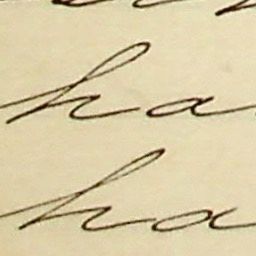 ha
ha